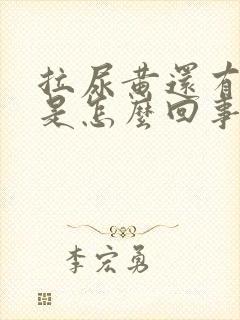 拉尿黄還有
是怎麼回事
李宏勇